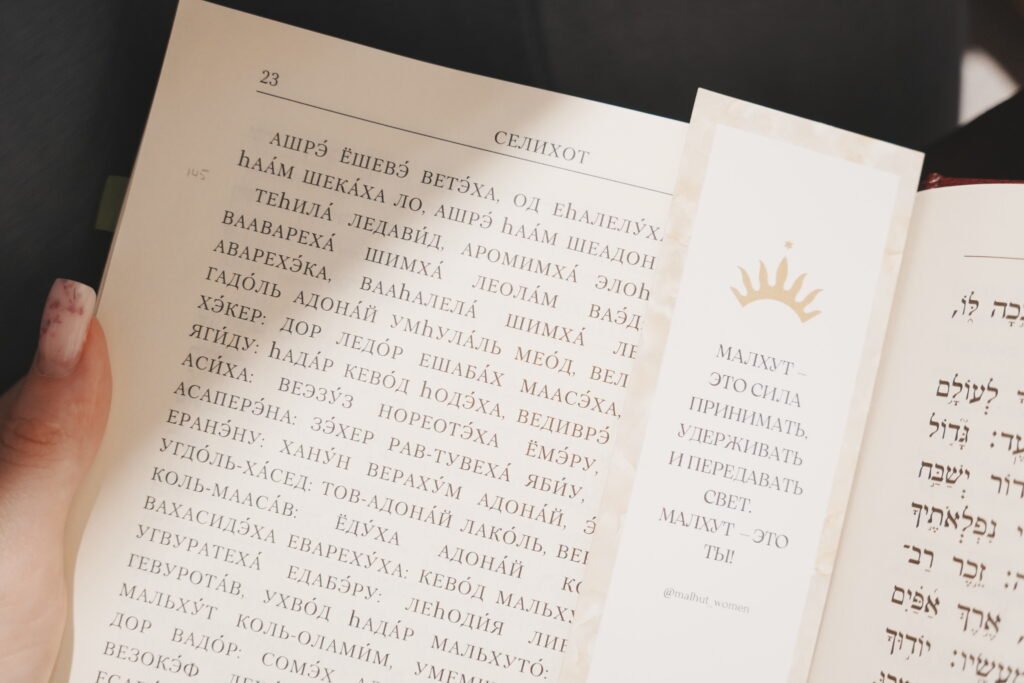 23
СЕЛИХОТ
145
АШРЭ́ ЁШЕВЭ́ ВЕТЭ́ХА, ОД ЕҺАЛЕЛУ́Х
ҺАА́М ШЕКА́ХА ЛО, АШРЭ́ ҺАА́М ШЕАДОН
ТЕҺИЛА́ ЛЕДАВИ́Д, АРОМИМХА́ ЭЛОҺ
ВААВАРЕХА́ ШИМХА́ ЛЕОЛА́М ВАЭ́Д
АВАРЕХЭ́КА, ВААҺАЛЕЛА́ ШИМХА́ ЛЕ
ГАДО́ЛЬ АДОНА́Й УМҺУЛА́ЛЬ МЕО́Д, ВЕЛ
ХЭ́КЕР: ДОР ЛЕДО́Р ЕШАБА́Х МААСЭ́ХА,
ЯГИ́ДУ: ҺАДА́Р КЕВО́Д ҺОДЭ́ХА, ВЕДИВРЭ́
АСИ́ХА: ВЕЭЗУ́З НОРЕОТЭ́ХА ЁМЭ́РУ,
АСАПЕРЭ́НА: ЗЭ́ХЕР РАВ-ТУВЕХА́ ЯБИ́У,
ЕРАНЭ́НУ: ХАНУ́Н ВЕРАХУ́М АДОНА́Й, Э́
УГДО́ЛЬ-ХА́СЕД: ТОВ-АДОНА́Й ЛАКО́ЛЬ, ВЕР
КОЛЬ-МААСА́В: ЁДУ́ХА АДОНА́Й КО
ВАХАСИДЭ́ХА ЕВАРЕХУ́ХА: КЕВО́Д МАЛЬХУ
УГВУРАТЕХА́ ЕДАБЭ́РУ: ЛЕҺОДИ́Я ЛИВ
ГЕВУРОТА́В, УХВО́Д ҺАДА́Р МАЛЬХУТО́:
МАЛЬХУ́Т КОЛЬ-ОЛАМИ́М, УМЕМШ
ДОР ВАДО́Р: СОМЭ́Х АДОНА́
ВЕЗОКЭ́Ф
МАЛХУТ –
ЭТО СИЛА
ПРИНИМАТЬ,
УДЕРЖИВАТЬ
И ПЕРЕДАВАТЬ
СВЕТ.
МАЛХУТ – ЭТО
ТЫ!
@malhut_women
לּוֹ,
לְעוֹלָם
גָּדוֹל
יְשַׁבַּח
נִפְלְאֹתֶיךָ
זֵכֶר רַב־
אֶרֶךְ אַפַּיִם
יוֹדוּךָ